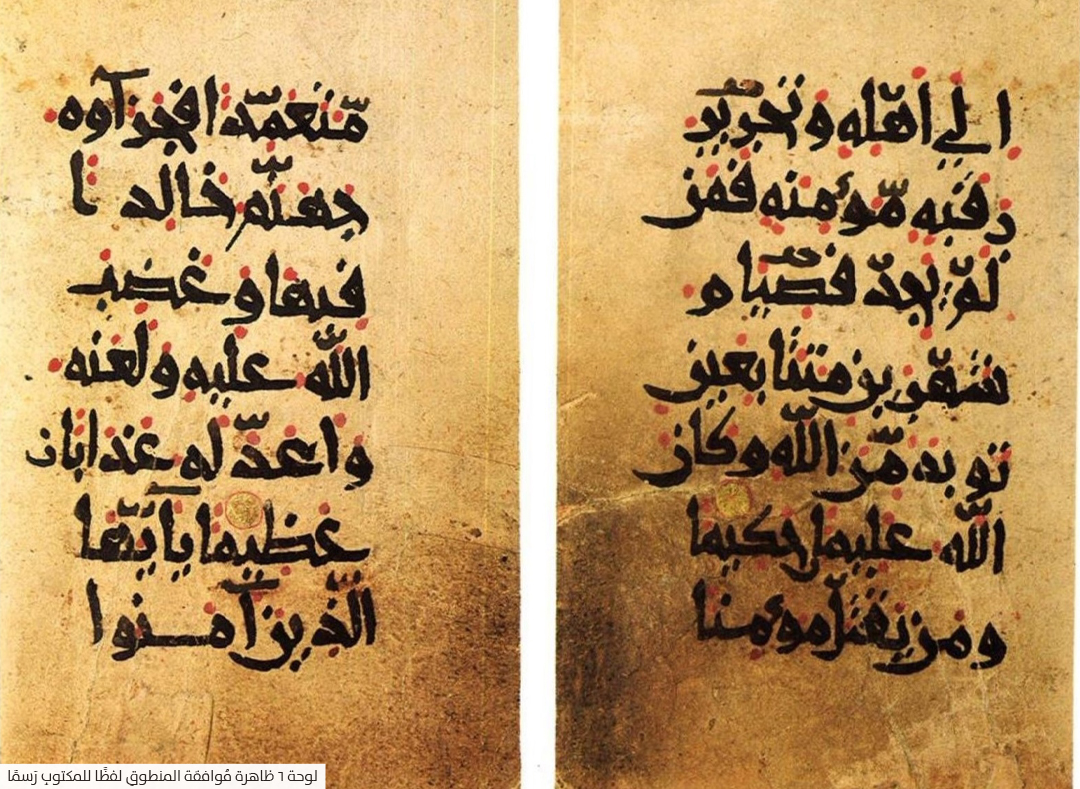 الى اهله وتحرير
رقبه مومنه فمن
لم يجد فصيام
شهرين متتابعين
توبه من الله وكان
الله عليما حكيما
ومن يقتل مومنا
متعمدا فجزآوه
جهنم خالدا
فيها وغضب
الله عليه ولعنه
واعد له عذابا
عظيما يآيها
الذين آمنوا
لوحة ٦ ظاهرة مُوافقة المنطوق لفظًا للمكتوب رَسمًا